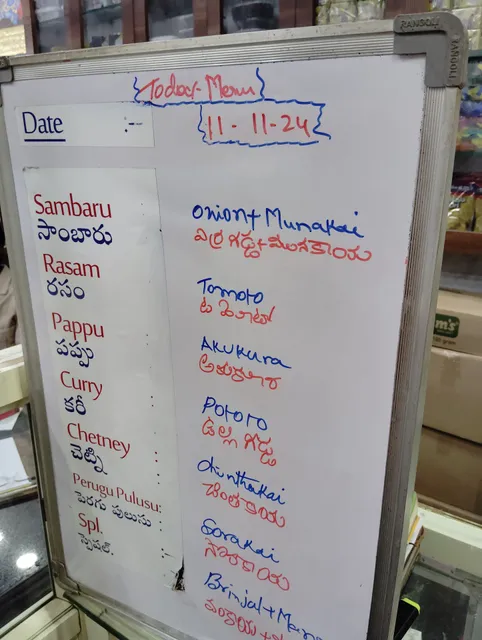 Today Menu
Date :-- 11-11-24
Sambaru Onion+Munakai
సాంబారు ఎర్ర గడ్డ+మునకాయ
Rasam Tomoto
రసం టమోటో
Pappu Akukura
పప్పు ఆకుకూర
Curry : Pototo
కరీ ఉల్ల గడ్డ
Chetney : chinthakai
చెట్ని : చింతకాయ
Perugu Pulusu: Sorakai
పెరుగు పులుసు : సొరకాయ
Spl. : Brinjal+
స్పెషల్. వంకాయ+
RANGOLI
RANGOLI